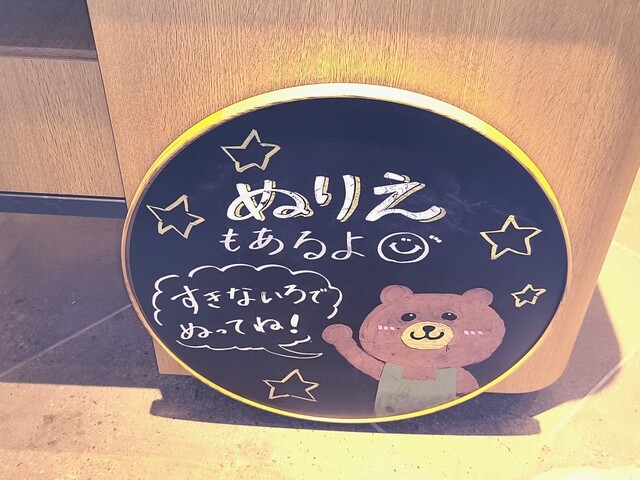 ぬりえ
もあるよ
すきないろで
ぬってね!